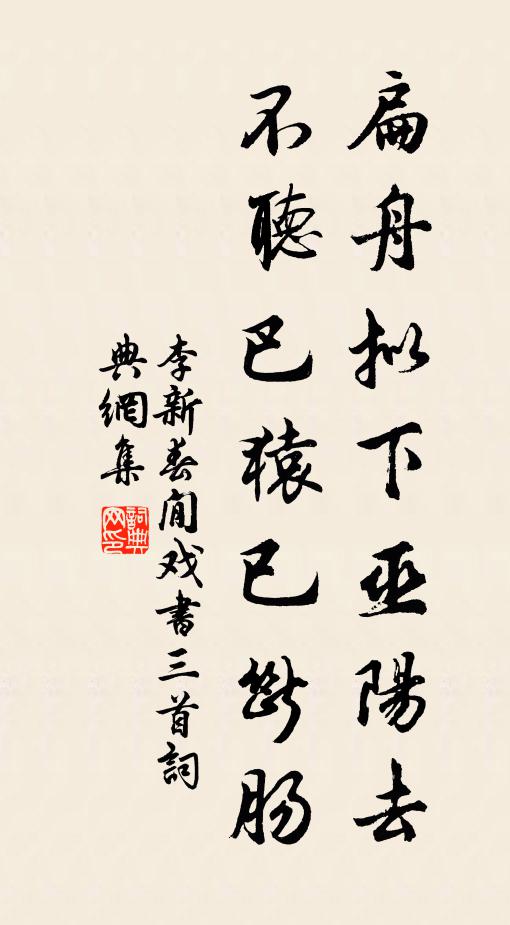 扁舟拟下巫陽去
不聽巴猿已斷肠
李新春闲戏書三首詞
典網集
詞典网印